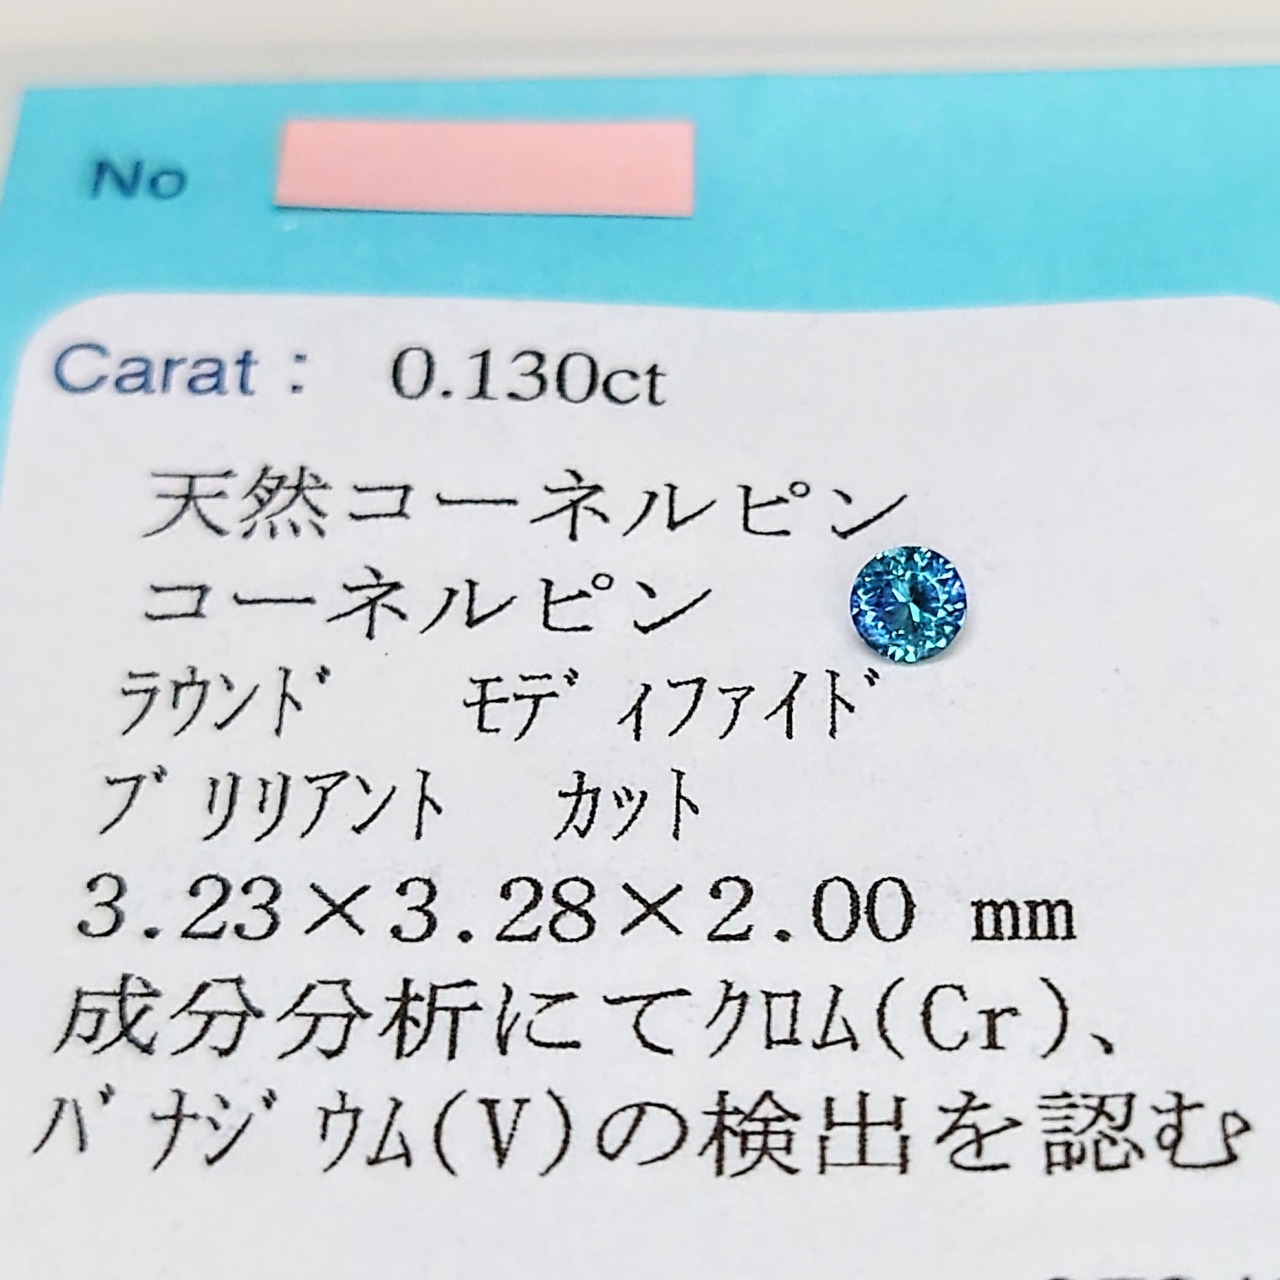 No
Carat： 0.130ct
天然コーネルピン
コーネルピン
ﾗｳﾝﾄﾞ ﾓﾃﾞｨﾌｧｲﾄﾞ
ﾌﾞﾘﾘｱﾝﾄ ｶｯﾄ
3.23×3.28×2.00 mm
成分分析にてｸﾛﾑ(Cr)、
ﾊﾞﾅｼﾞｳﾑ(V)の検出を認む